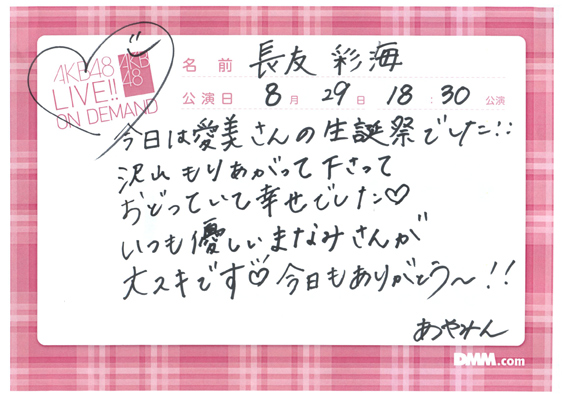 AKB48
LIVE!!
ON DEMAND
AKB
48
名前 長友 彩海
公演日 8月 29日 18:30 公演
今日は愛美さんの生誕祭でした!!
沢山もりあがって下さって
おどっていて幸せでした♡
いつも優しいまなみさんが
大スキです♡今日もありがとう〜!!
あやみん
DMM.com